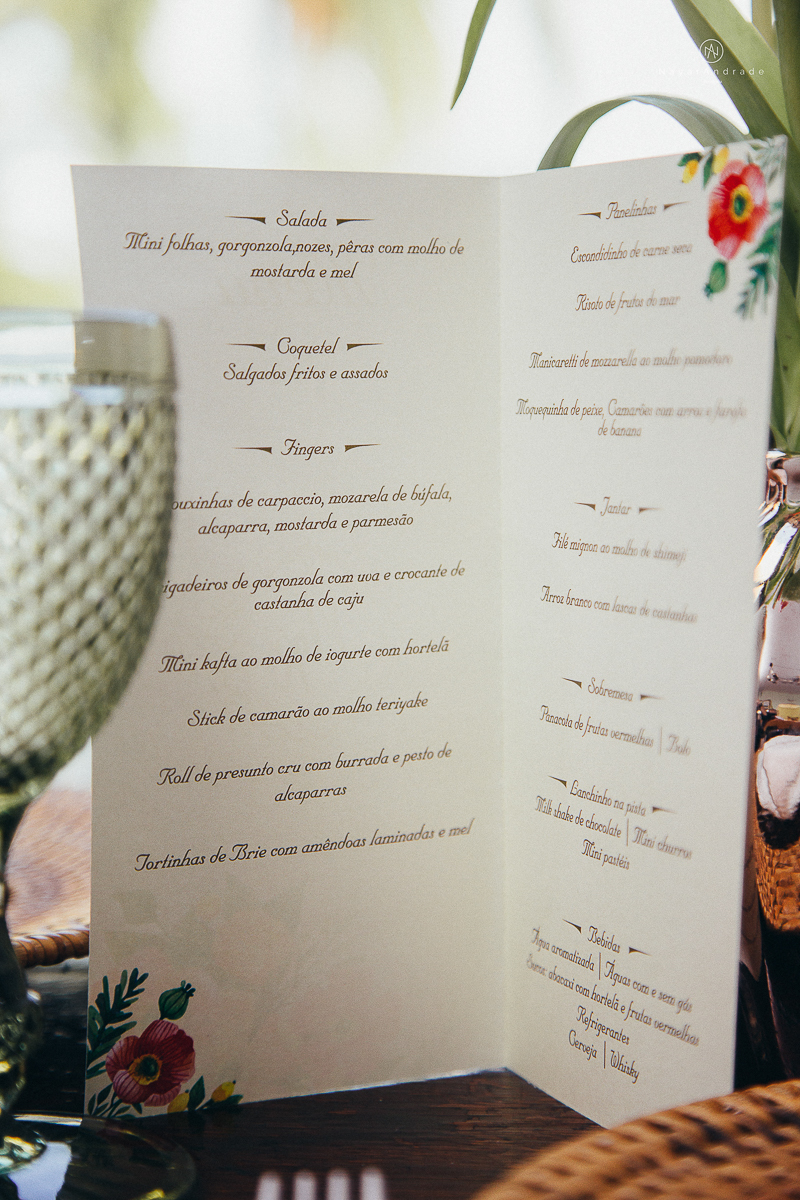 Salada
Mini folhas, gorgonzola,nozes, pêras com molho de
mostarda e mel
Coquetel
Salgados fritos e assados
Fingers
ouxinhas de carpaccio, mozarela de búfala,
alcaparra, mostarda e parmesão
igadeiros de gorgonzola com uva e crocante de
castanha de caju
Mini kafta ao molho de iogurte com hortelã
Stick de camarão ao molho teriyake
Roll de presunto cru com burrada e pesto de
alcaparras
Tortinhas de Brie com amêndoas laminadas e mel
Panelinhas
Escondidinho de carne seca
Risoto de frutos do mar
Manicaretti de mozzarella ao molho pomodoro
Moquequinha de peixe, Camarões com arroz e farofa
de banana
Jantar
Filé mignon ao molho de shimeji
Arroz branco com lascas de castanhas
Sobremesa
Panacota de frutas vermelhas | Bolo
Lanchinho na pista
Milk shake de chocolate | Mini churros
Mini pastéis
Bebidas
Água aromatizada | Águas com e sem gás
Sucos: abacaxi com hortelã e frutas vermelhas
Refrigerantes
Cerveja | Whisky